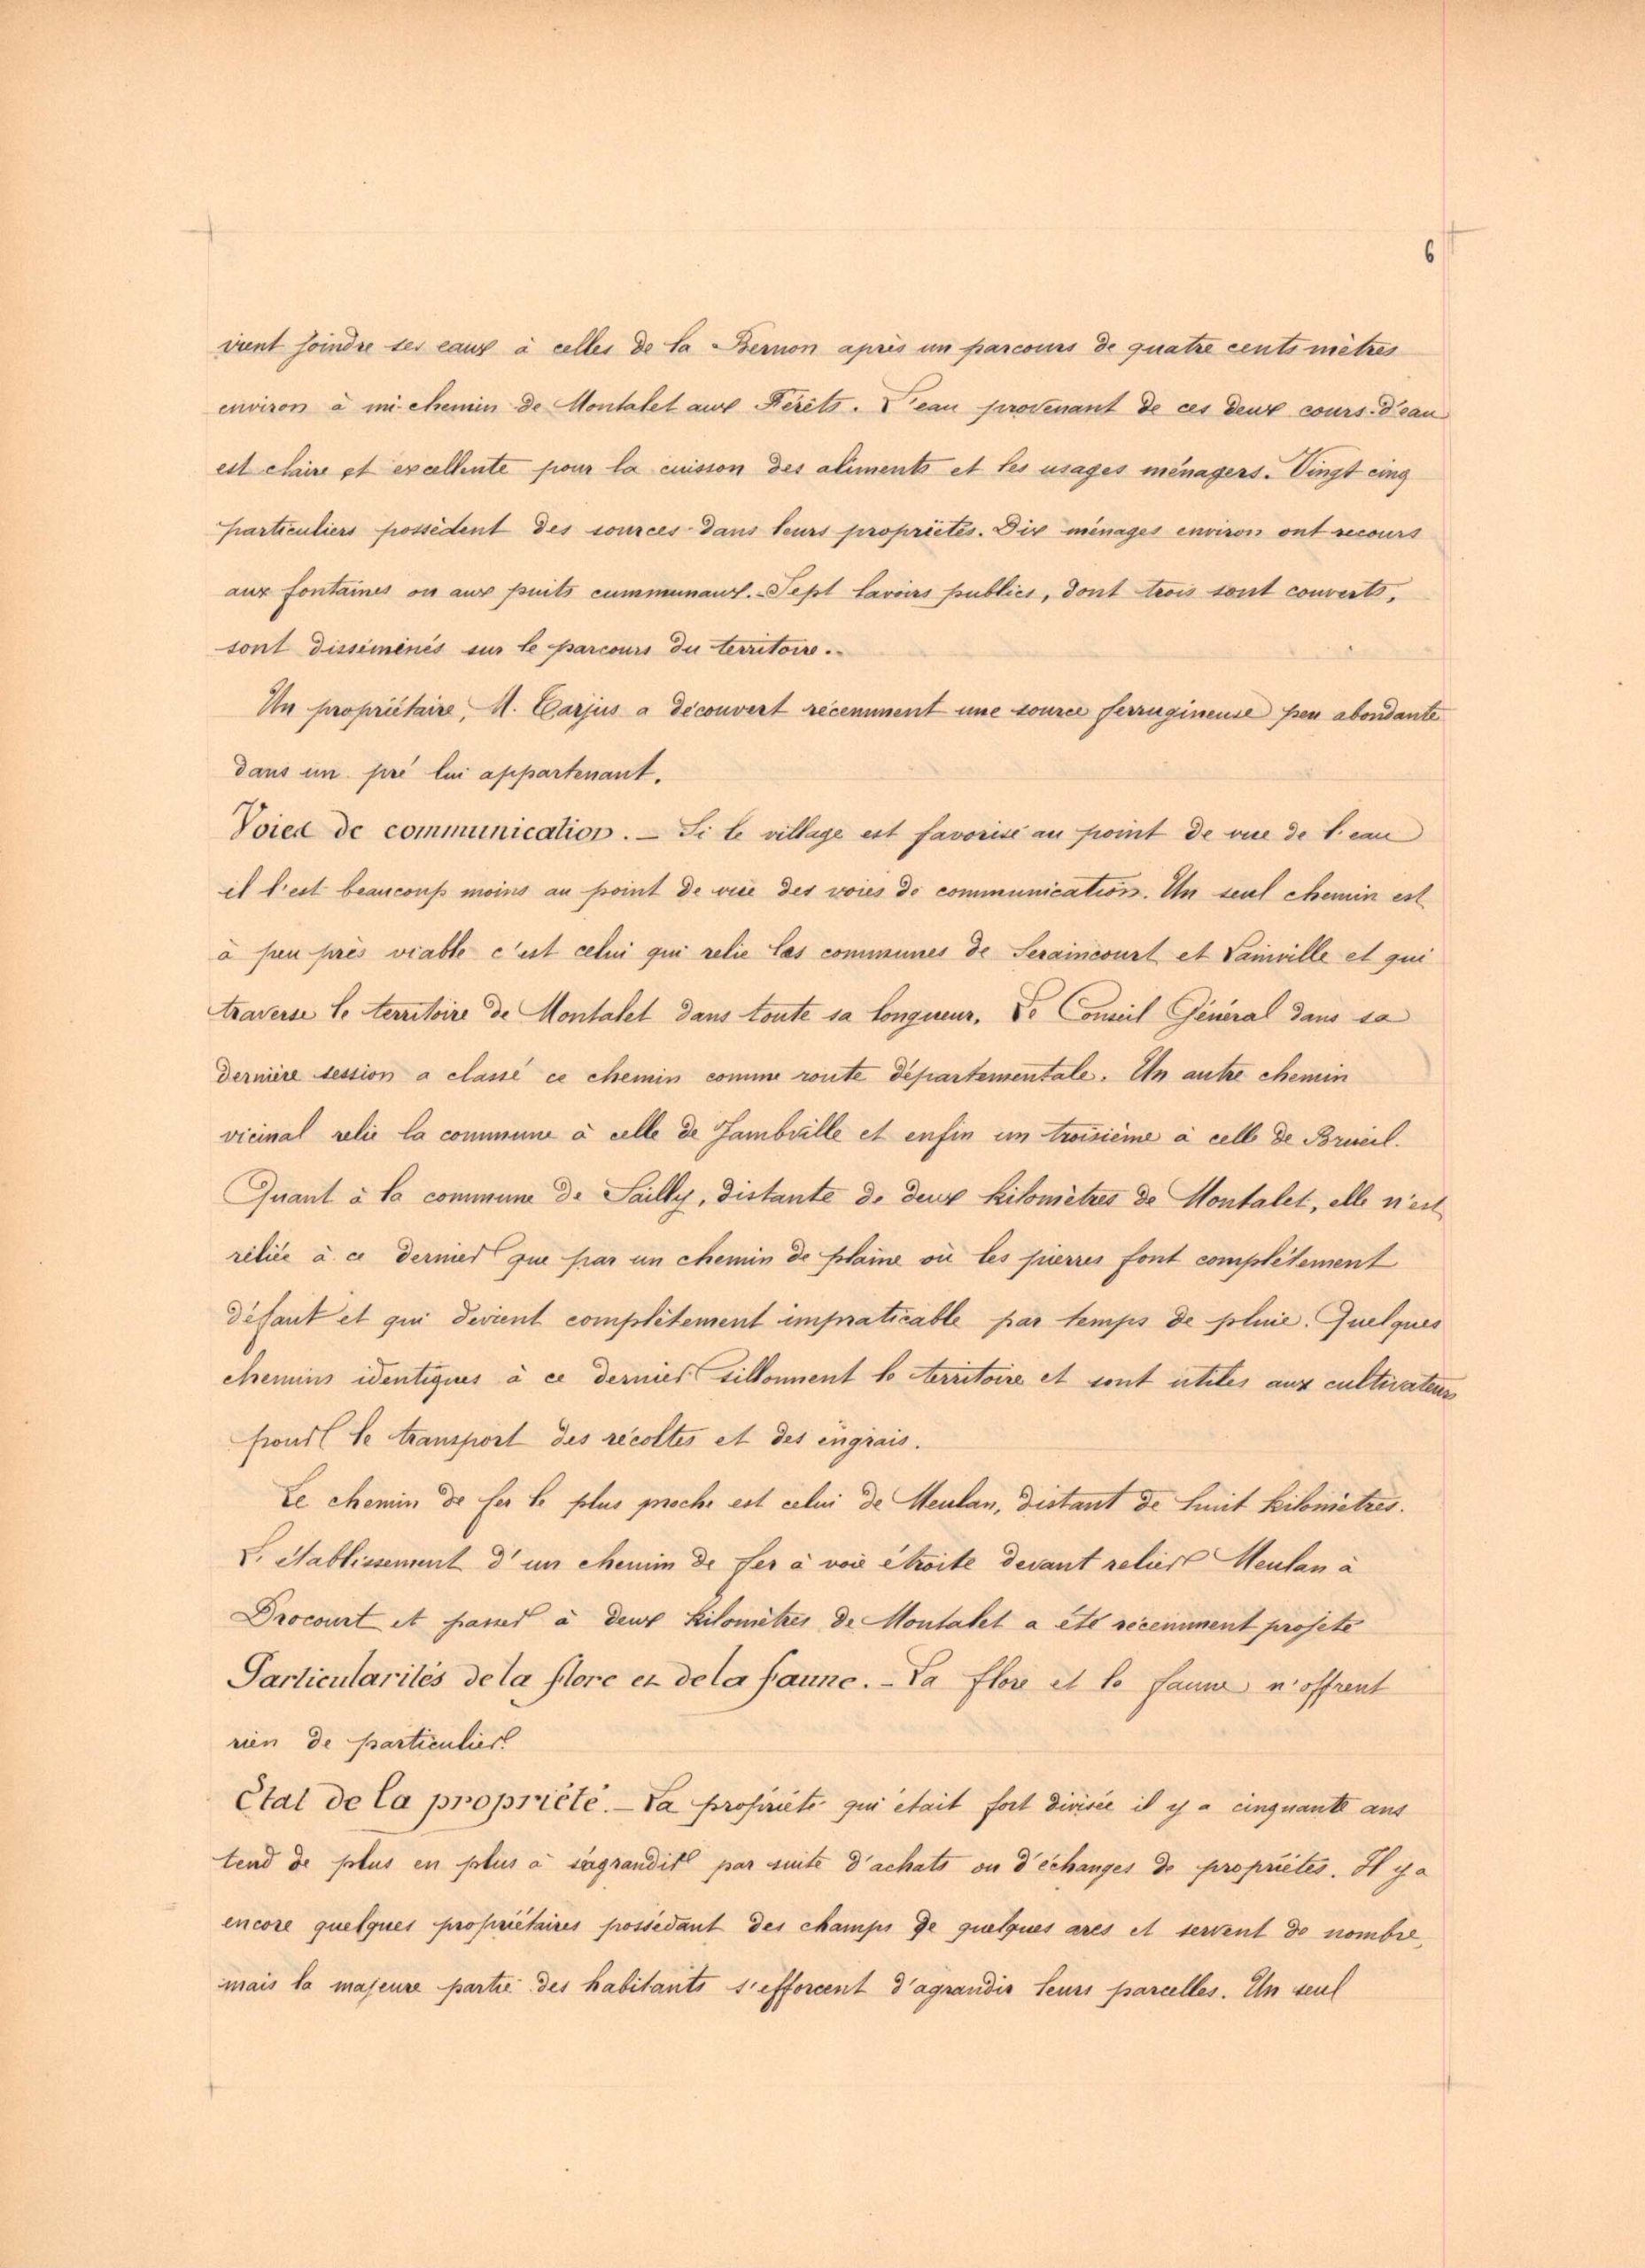 6
vient joindre ses eaux à celles de la Bernon après un parcours de quatre cents mètres
environ à mi-chemin de Montalet aux Férêts. L'eau provenant de ces deux cours-d'eau
est claire et excellente pour la cuisson des aliments et les usages ménagers. Vingt cinq
particuliers possèdent des sources dans leurs propriétés. Dix ménages environ ont recours
aux fontaines ou aux puits cummunaux. Sept lavoirs publics, dont trois sont couverts,
sont disséminés sur le parcours du territoire.
Un propriétaire, M. Carjus a découvert récemment une source ferrugineuse peu abondante
dans un pré lui appartenant.
Voies de communication. — Si le village est favorisé au point de vue de l'eau
il l'est beaucoup moins au point de vue des voies de communication. Un seul chemin est
à peu près viable c'est celui qui relie les communes de Seraincourt et Lainville et qui
traverse le territoire de Montalet dans toute sa longueur. Le Conseil Général dans sa
dernière session a classé ce chemin comme route départementale. Un autre chemin
vicinal relie la commune à celle de Jambville et enfin un troisième à celle de Brueil.
Quant à la commune de Sailly, distante de deux kilomètres de Montalet, elle n'est
reliée à ce dernier que par un chemin de plaine où les pierres font complètement
défaut et qui devient complètement impraticable par temps de pluie. Quelques
chemins identiques à ce dernier sillonnent le territoire et sont utiles aux cultivateurs
pour le transport des récoltes et des engrais.
Le chemin de fer le plus proche est celui de Meulan, distant de huit kilomètres.
L'établissement d'un chemin de fer à voie étroite devant relier Meulan à
Drocourt et passer à deux kilomètres de Montalet a été récemment projeté
Particularités de la flore et de la faune. - La flore et la faune n'offrent
rien de particulier.
État de la propriété. — La propriété qui était fort divisée il y a cinquante ans
tend de plus en plus à s'agrandir par suite d'achats ou d'échanges de propriétés. Il y a
encore quelques propriétaires possédant des champs de quelques ares et servent de nombre,
mais la majeure partie des habitants s'efforcent d'agrandir leurs parcelles. Un seul